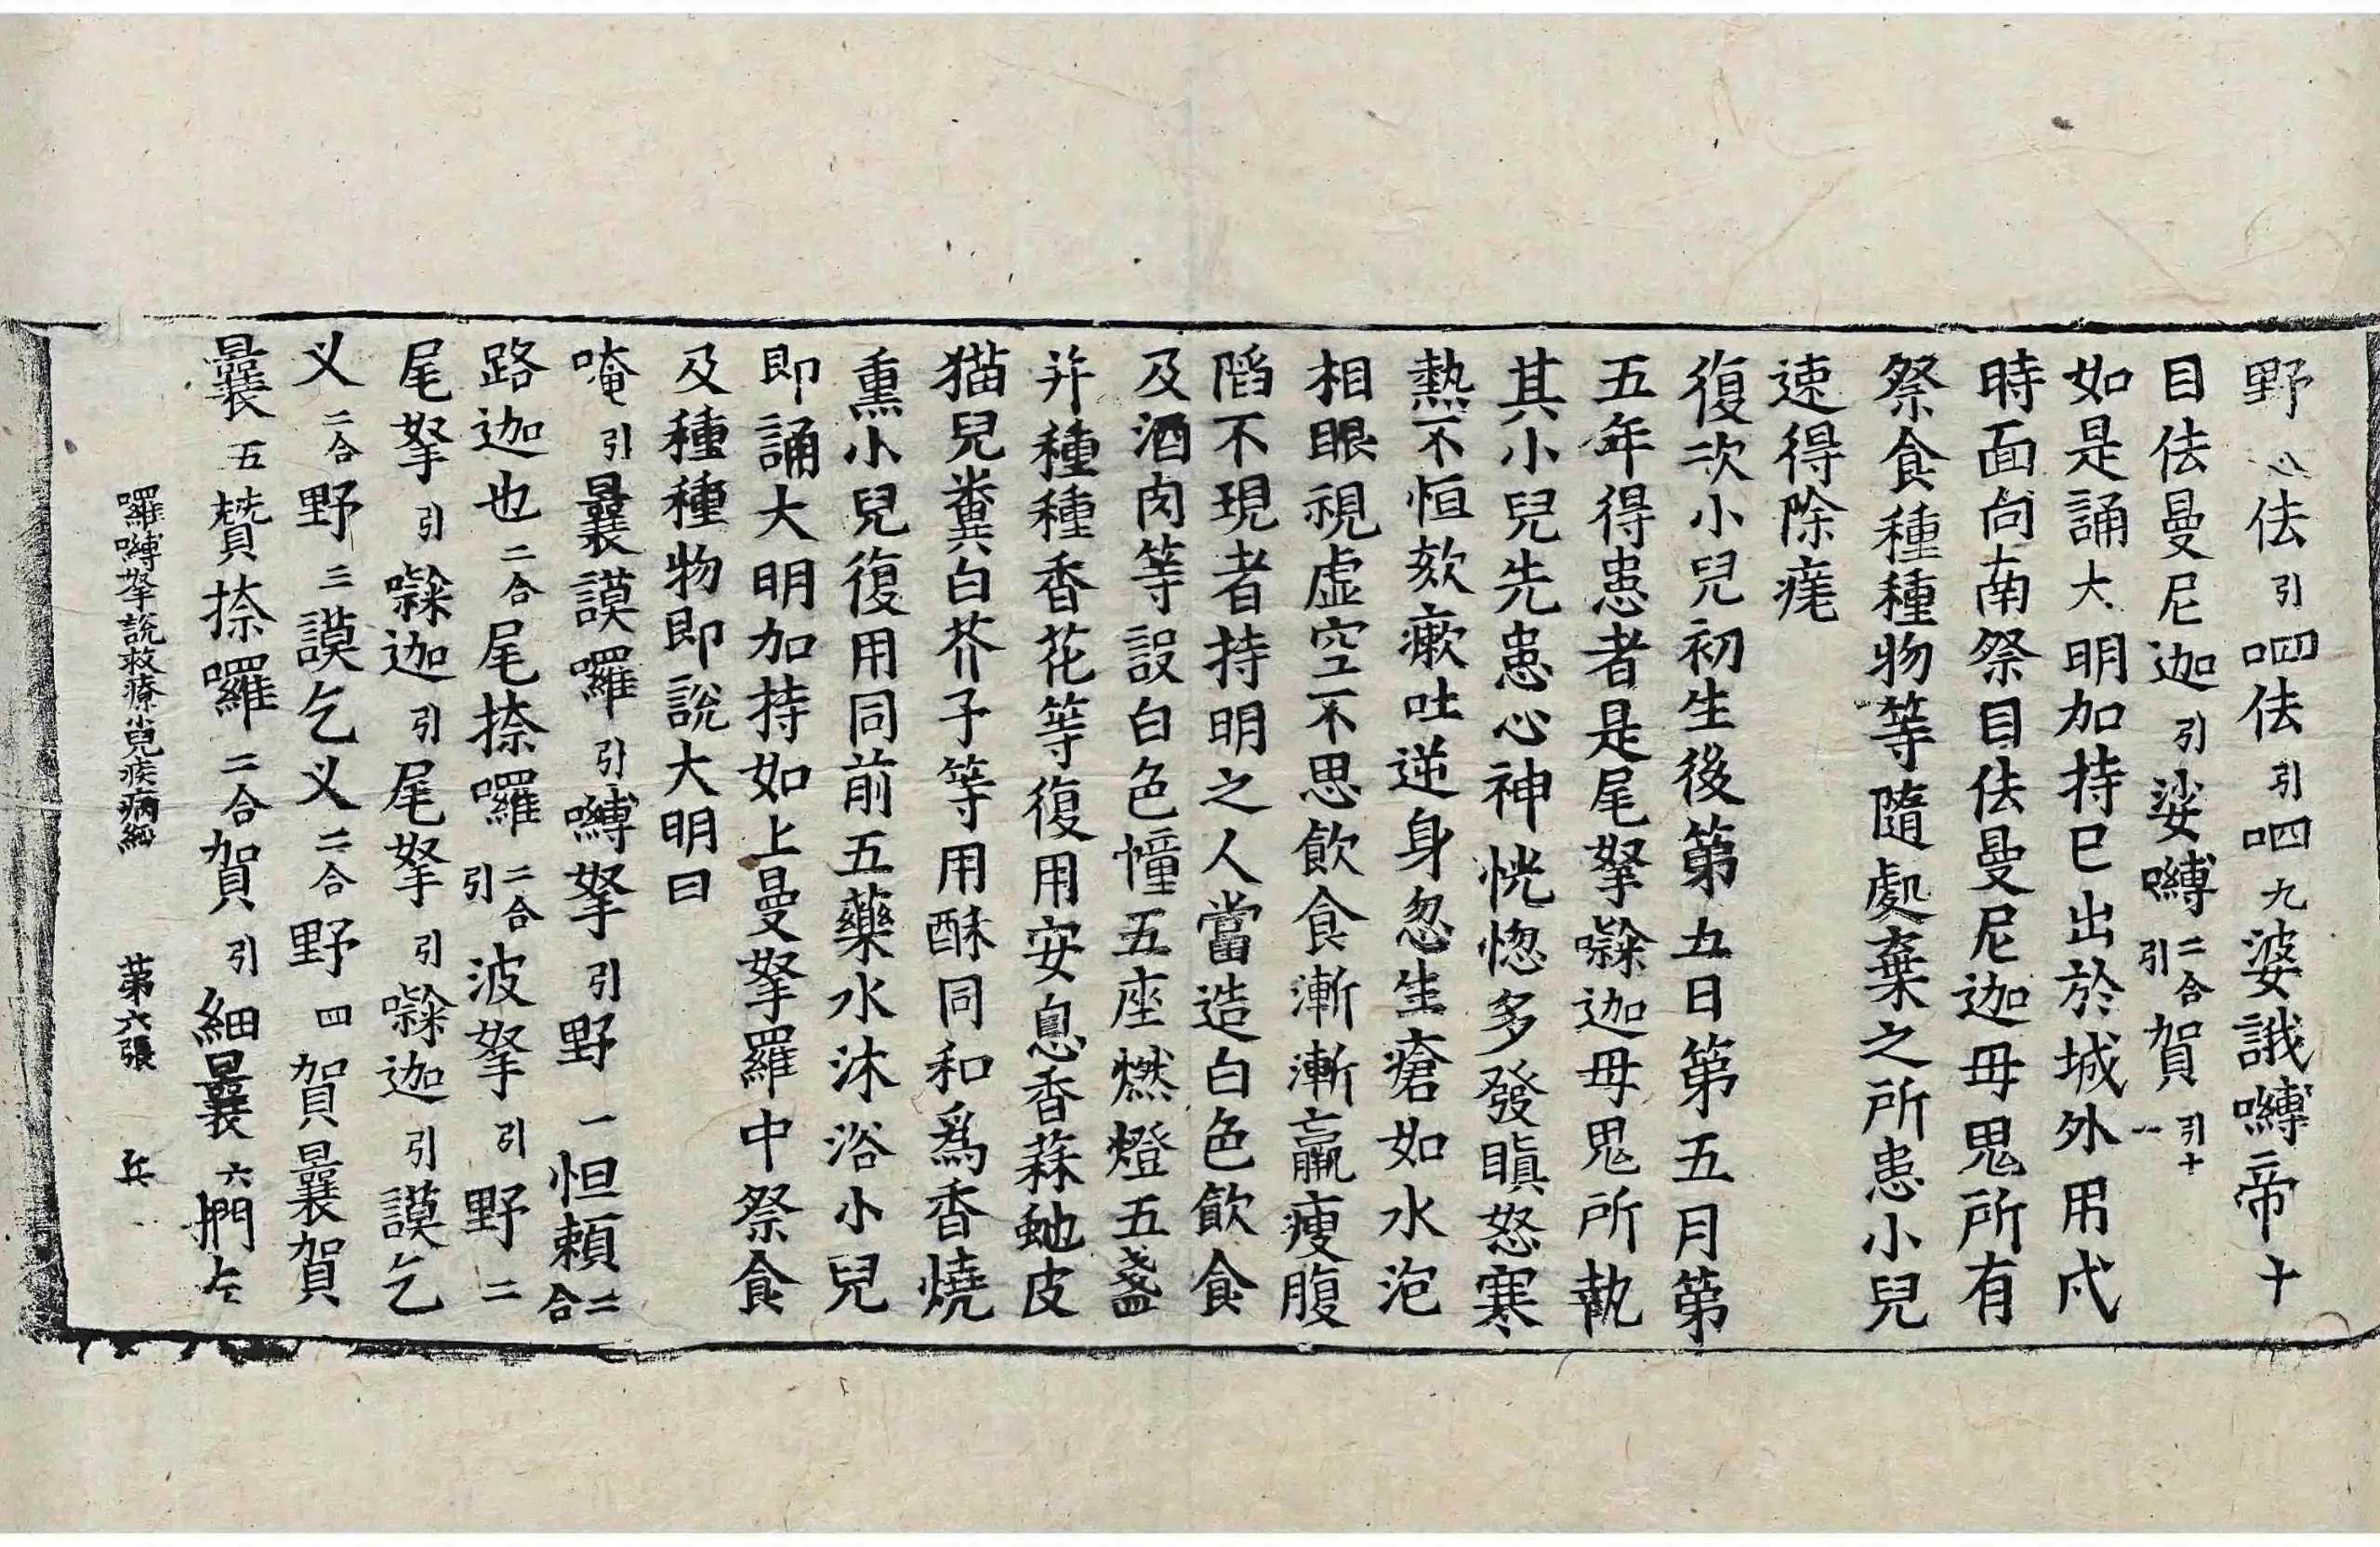 野八佉引呬佉引呬九婆誐嚩帝十
目佉曼尼迦引娑嚩二合引賀引十一
如是誦大明加持已出於城外用戌
時面向南祭目佉曼尼迦母鬼所有
祭食種種物等隨處棄之所患小兒
速得除瘥
復次小兒初生後第五日第五月第
五年得患者是尾拏噪迦母鬼所執
其小兒先患心神恍惚多發瞋怒寒
熱不恒欬瘶吐逆身忽生瘡如水泡
相眼視虛空不思飲食漸漸羸瘦腹
陷不現者持明之人當造白色飲食
及酒肉等設白色幢五座燃燈五盞
并種種香花等復用安息香蒜虵皮
猫兒糞白芥子等用酥同和爲香燒
熏小兒復用同前五藥水沐浴小兒
即誦大明加持如上曼拏羅中祭食
及種種物即說大明曰
唵引曩謨囉引嚩拏引野一怛賴二合
路迦也二合尾捺囉二合引波拏引野二
尾拏引噪迦引尾拏引噪迦引謨乞
义二合野三謨乞义二合野四賀曩賀
曩五贊捺囉二合賀引細曩六捫左
囉嚩拏說救療小兒疾病經 第六張 兵